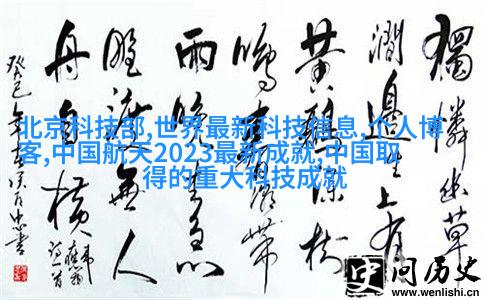 北京科技部,世界最新科技信息,个人博
客,中国航天2023最新成就,中国取
得的重大科技成就
獨憐幽草
澗邊生上有
黃鸝深樹
鳴春潮帶
雨晚來急
野渡無人
舟自橫
癸巳年
史问历史
www.wenlishi.cn